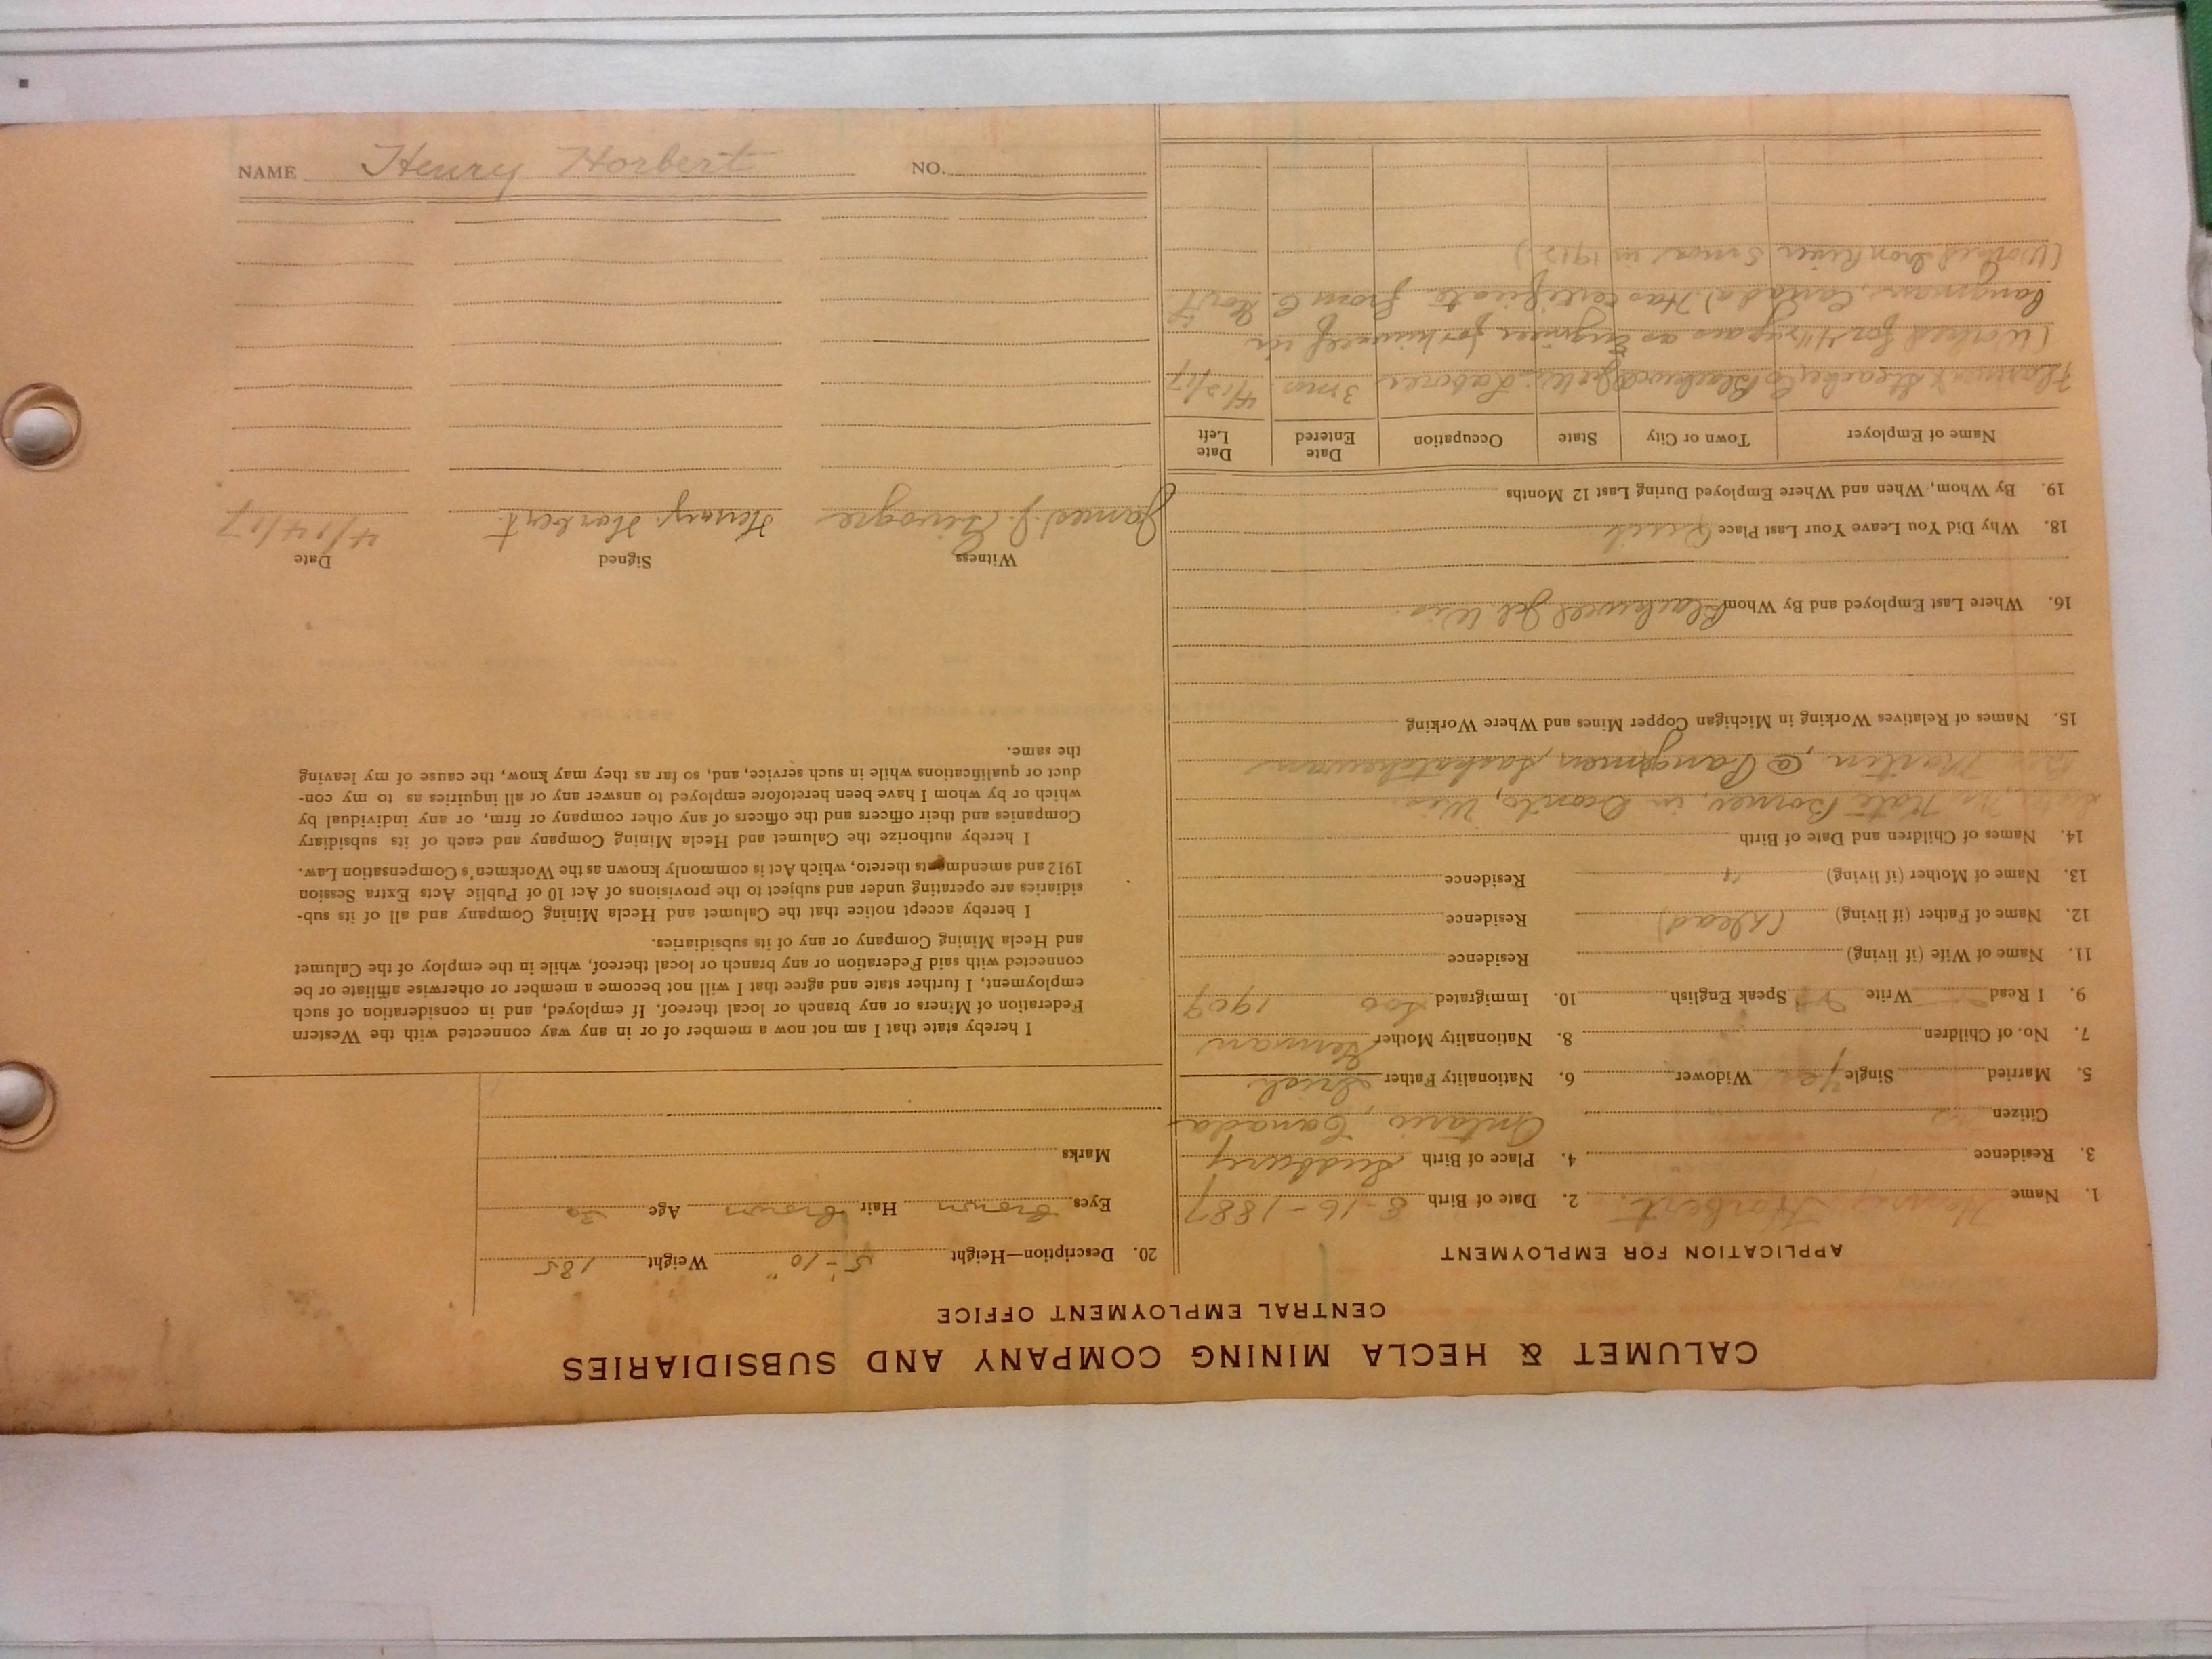 CALUMET & HECLA MINING COMPANY AND SUBSIDIARIES
CENTRAL EMPLOYMENT OFFICE
APPLICATION FOR EMPLOYMENT
1. Name Henry Horbert. 2. Date of Birth 8-16-1887
3. Residence 4. Place of Birth Sudbury
Citizen Ontario, Canada
5. Married Single Yes Widower 6. Nationality Father Irish
7. No. of Children 8. Nationality Mother German
9. I Read Write Speak English 10. Immigrated Soo 1907
11. Name of Wife (if living) Residence
12. Name of Father (if living) (Dead) Residence
13. Name of Mother (if living) " Residence
14. Names of Children and Date of Birth
Kate in Oconto, Wis.
Bro Martin, @ Langman, Saskatchewan
15. Names of Relatives Working in Michigan Copper Mines and Where Working
16. Where Last Employed and By Whom Blackwell Jct. Wis.
18. Why Did You Leave Your Last Place Quit
19. By Whom, When and Where Employed During Last 12 Months
Name of Employer Town or City State Occupation Date Entered Date Left
Blackwell Jct Wis. Laborer 3 mos. 4/13/17
(Worked for 4 yrs as Engineer for himself in
Langman, Canada) Has certificate from
(Worked Iron River 5 mos in 1912)
20. Description—Height 5'-10" Weight 185
Eyes brown Hair brown Age 30
Marks
I hereby state that I am not now a member of or in any way connected with the Western
Federation of Miners or any branch or local thereof. If employed, and in consideration of such
employment, I further state and agree that I will not become a member or otherwise affiliate or be
connected with said Federation or any branch or local thereof, while in the employ of the Calumet
and Hecla Mining Company or any of its subsidiaries.
I hereby accept notice that the Calumet and Hecla Mining Company and all of its sub-
sidiaries are operating under and subject to the provisions of Act 10 of Public Acts Extra Session
1912 and amendments thereto, which Act is commonly known as the Workmen's Compensation Law.
I hereby authorize the Calumet and Hecla Mining Company and each of its subsidiary
Companies and their officers and the officers of any other company or firm, or any individual by
which or by whom I have been heretofore employed to answer any or all inquiries as to my con-
duct or qualifications while in such service, and, so far as they may know, the cause of my leaving
the same.
Witness Signed Date
James J. Henry. Horbert. 4/14/17
NAME Henry Horbert NO.